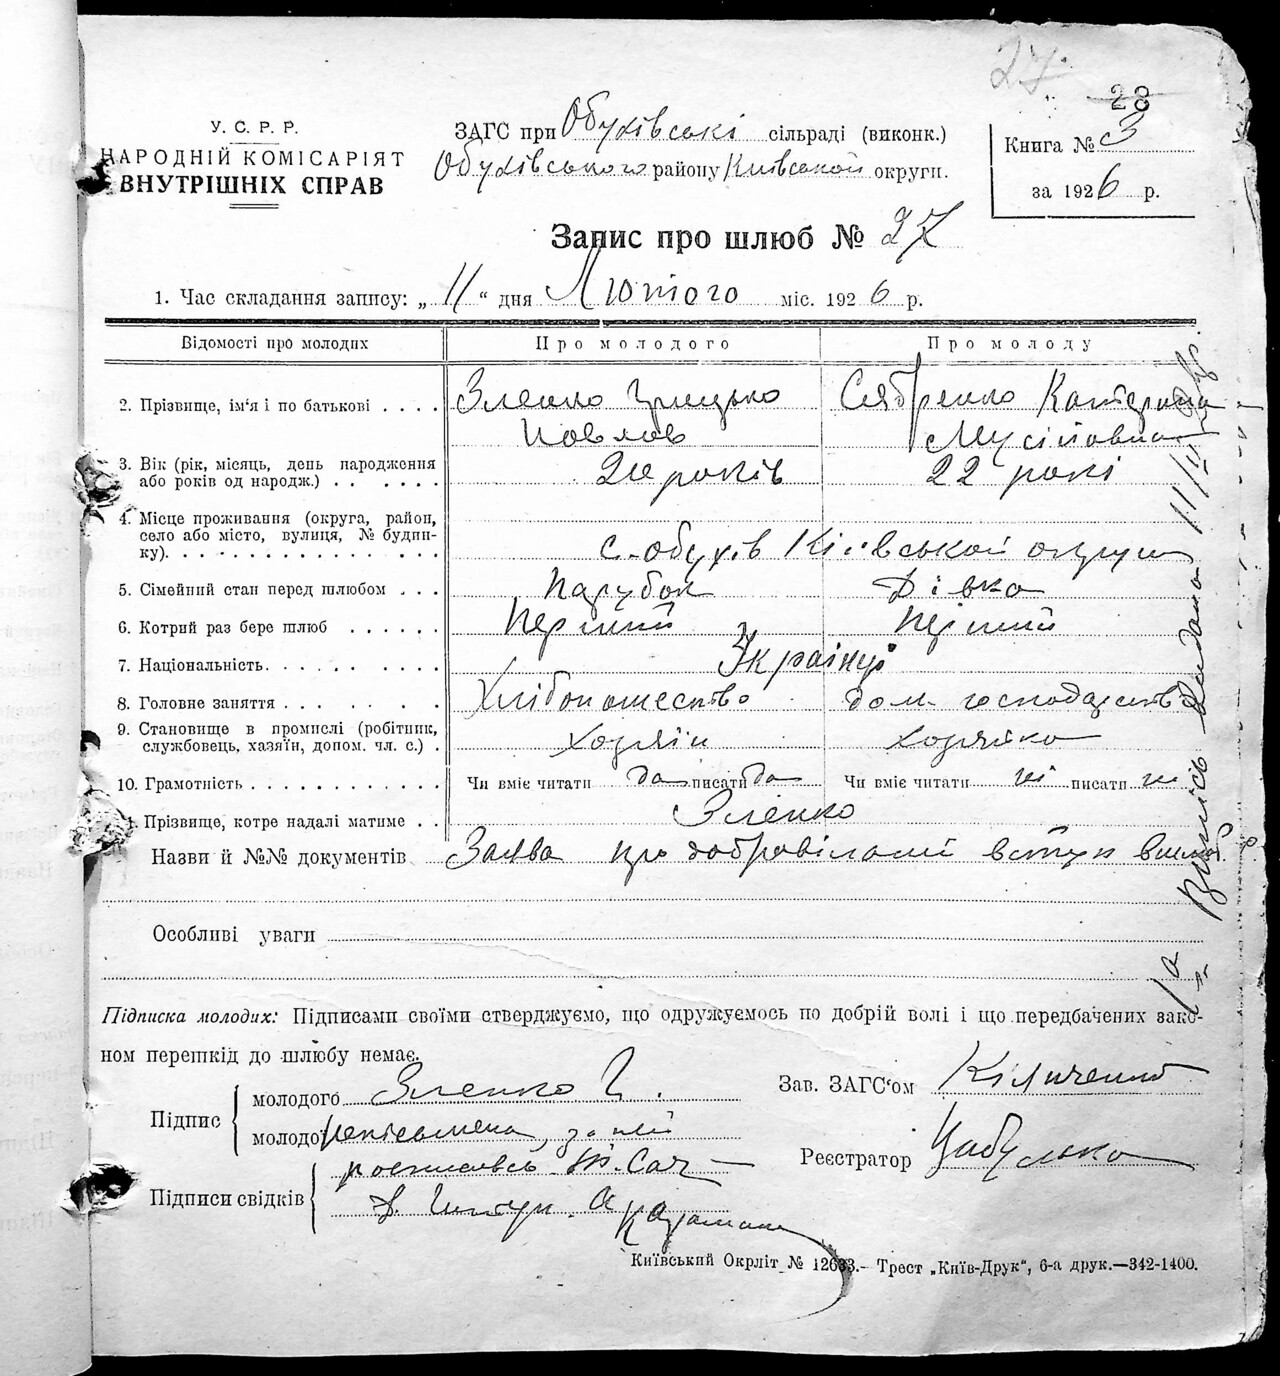 27
28
У. С. Р. Р.
НАРОДНІЙ КОМІСАРІЯТ
ВНУТРІШНІХ СПРАВ
ЗАГС при Обухівські сільраді (виконк.)
Обухівського району Київської округи.
Книга № 3
за 1926 р.
Запис про шлюб № 27
1. Час складання запису: „11“ дня Лютого міс. 1926 р.
Відомості про молодих Про молодого Про молоду
2. Прізвище, ім'я і по батькові . . . . Зленко Грицько Сябренко Катерина
Павлов Мусіївна
3. Вік (рік, місяць, день народження 20 років 22 рокі
або років од народж.) . . . . . .
4. Місце проживання (округа, район,
село або місто, вулиця, № будин-
ку). . . . . . . . . . . . . . . с. Обухів Київської округи
5. Сімейний стан перед шлюбом . . . Парубок Дівка
6. Котрий раз бере шлюб . . . . . . Перший Перший
7. Національність. . . . . . . . . . Українці
8. Головне заняття . . . . . . . Хлібопашество дом. господарство
9. Становище в промислі (робітник, Хозяїн Хозяйка
службовець, хазяїн, допом. чл. с.) .
10. Грамотність . . . . . . . . . . . . Чи вміє читати да писати да Чи вміє читати ні писати ні
Прізвище, котре надалі матиме . . Зленко
Назви й №№ документів Заява про добровільний вступ в шлюб
Особливі уваги
Підписка молодих: Підписами своїми стверджуємо, що одружуємось по добрій волі і що передбачених зако-
ном перешкід до шлюбу немає.
Підпис
молодого Зленко Г.
молодої неписьмена, за неї
росписавсь
Підписи свідків
Зав. ЗАГС'ом Кільченко
Реєстратор Цибулько
Київський Окрліт № 12633.- Трест „Київ-Друк“, 6-а друк.—342-1400.
Випись видана 11/II